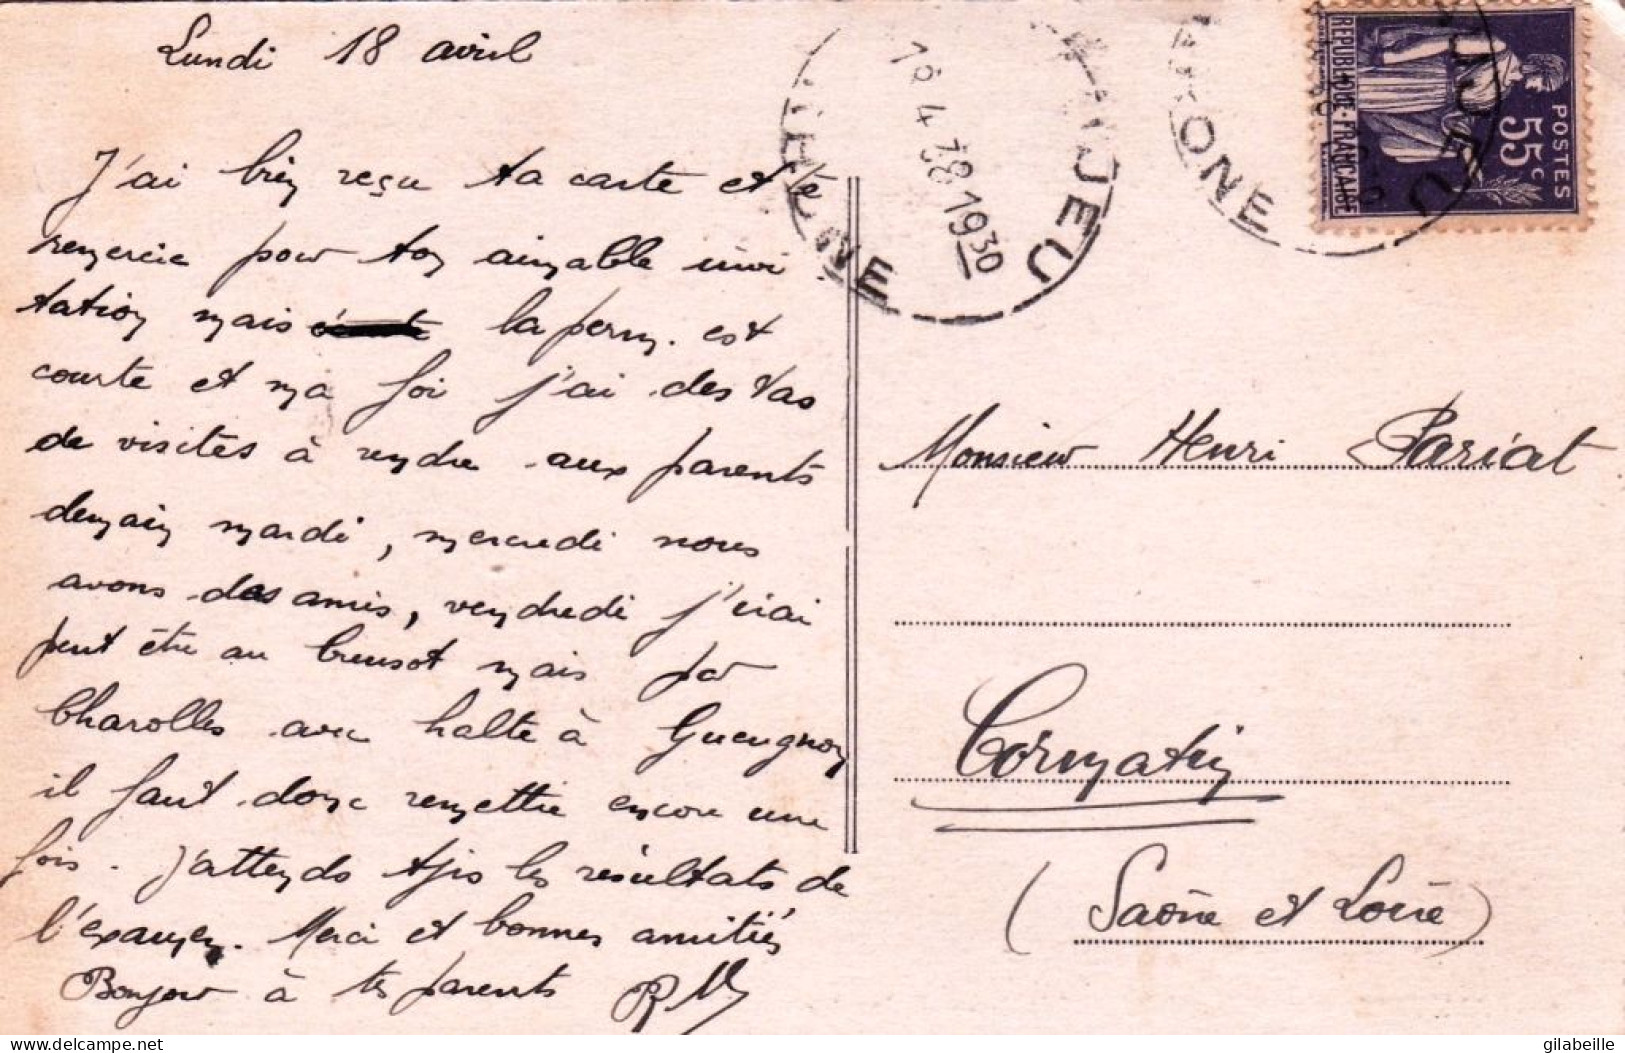 Lundi 18 avril
J'ai bien reçu ta carte et te
remercie pour ton aimable invi
tation mais la perm. est
courte et ma foi j'ai des tas
de visites à rendre aux parents
demain mardi, mercredi nous
avons des amis, vendredi j'irai
peut être au Creusot mais par
Charolles avec halte à Gueugnon
il faut donc remettre encore une
fois. J'attends tjrs les résultats de
l'examen. Merci et bonnes amitiés
Bonjour à tes parents
18 4 38 1930
JEU
NE
ONE
JEU
REPUBLIQUE·FRANÇAISE
POSTES
55c
Monsieur Henri Pariat
Cormatin
(Saône et Loire)
delcampe.net
gilabeille